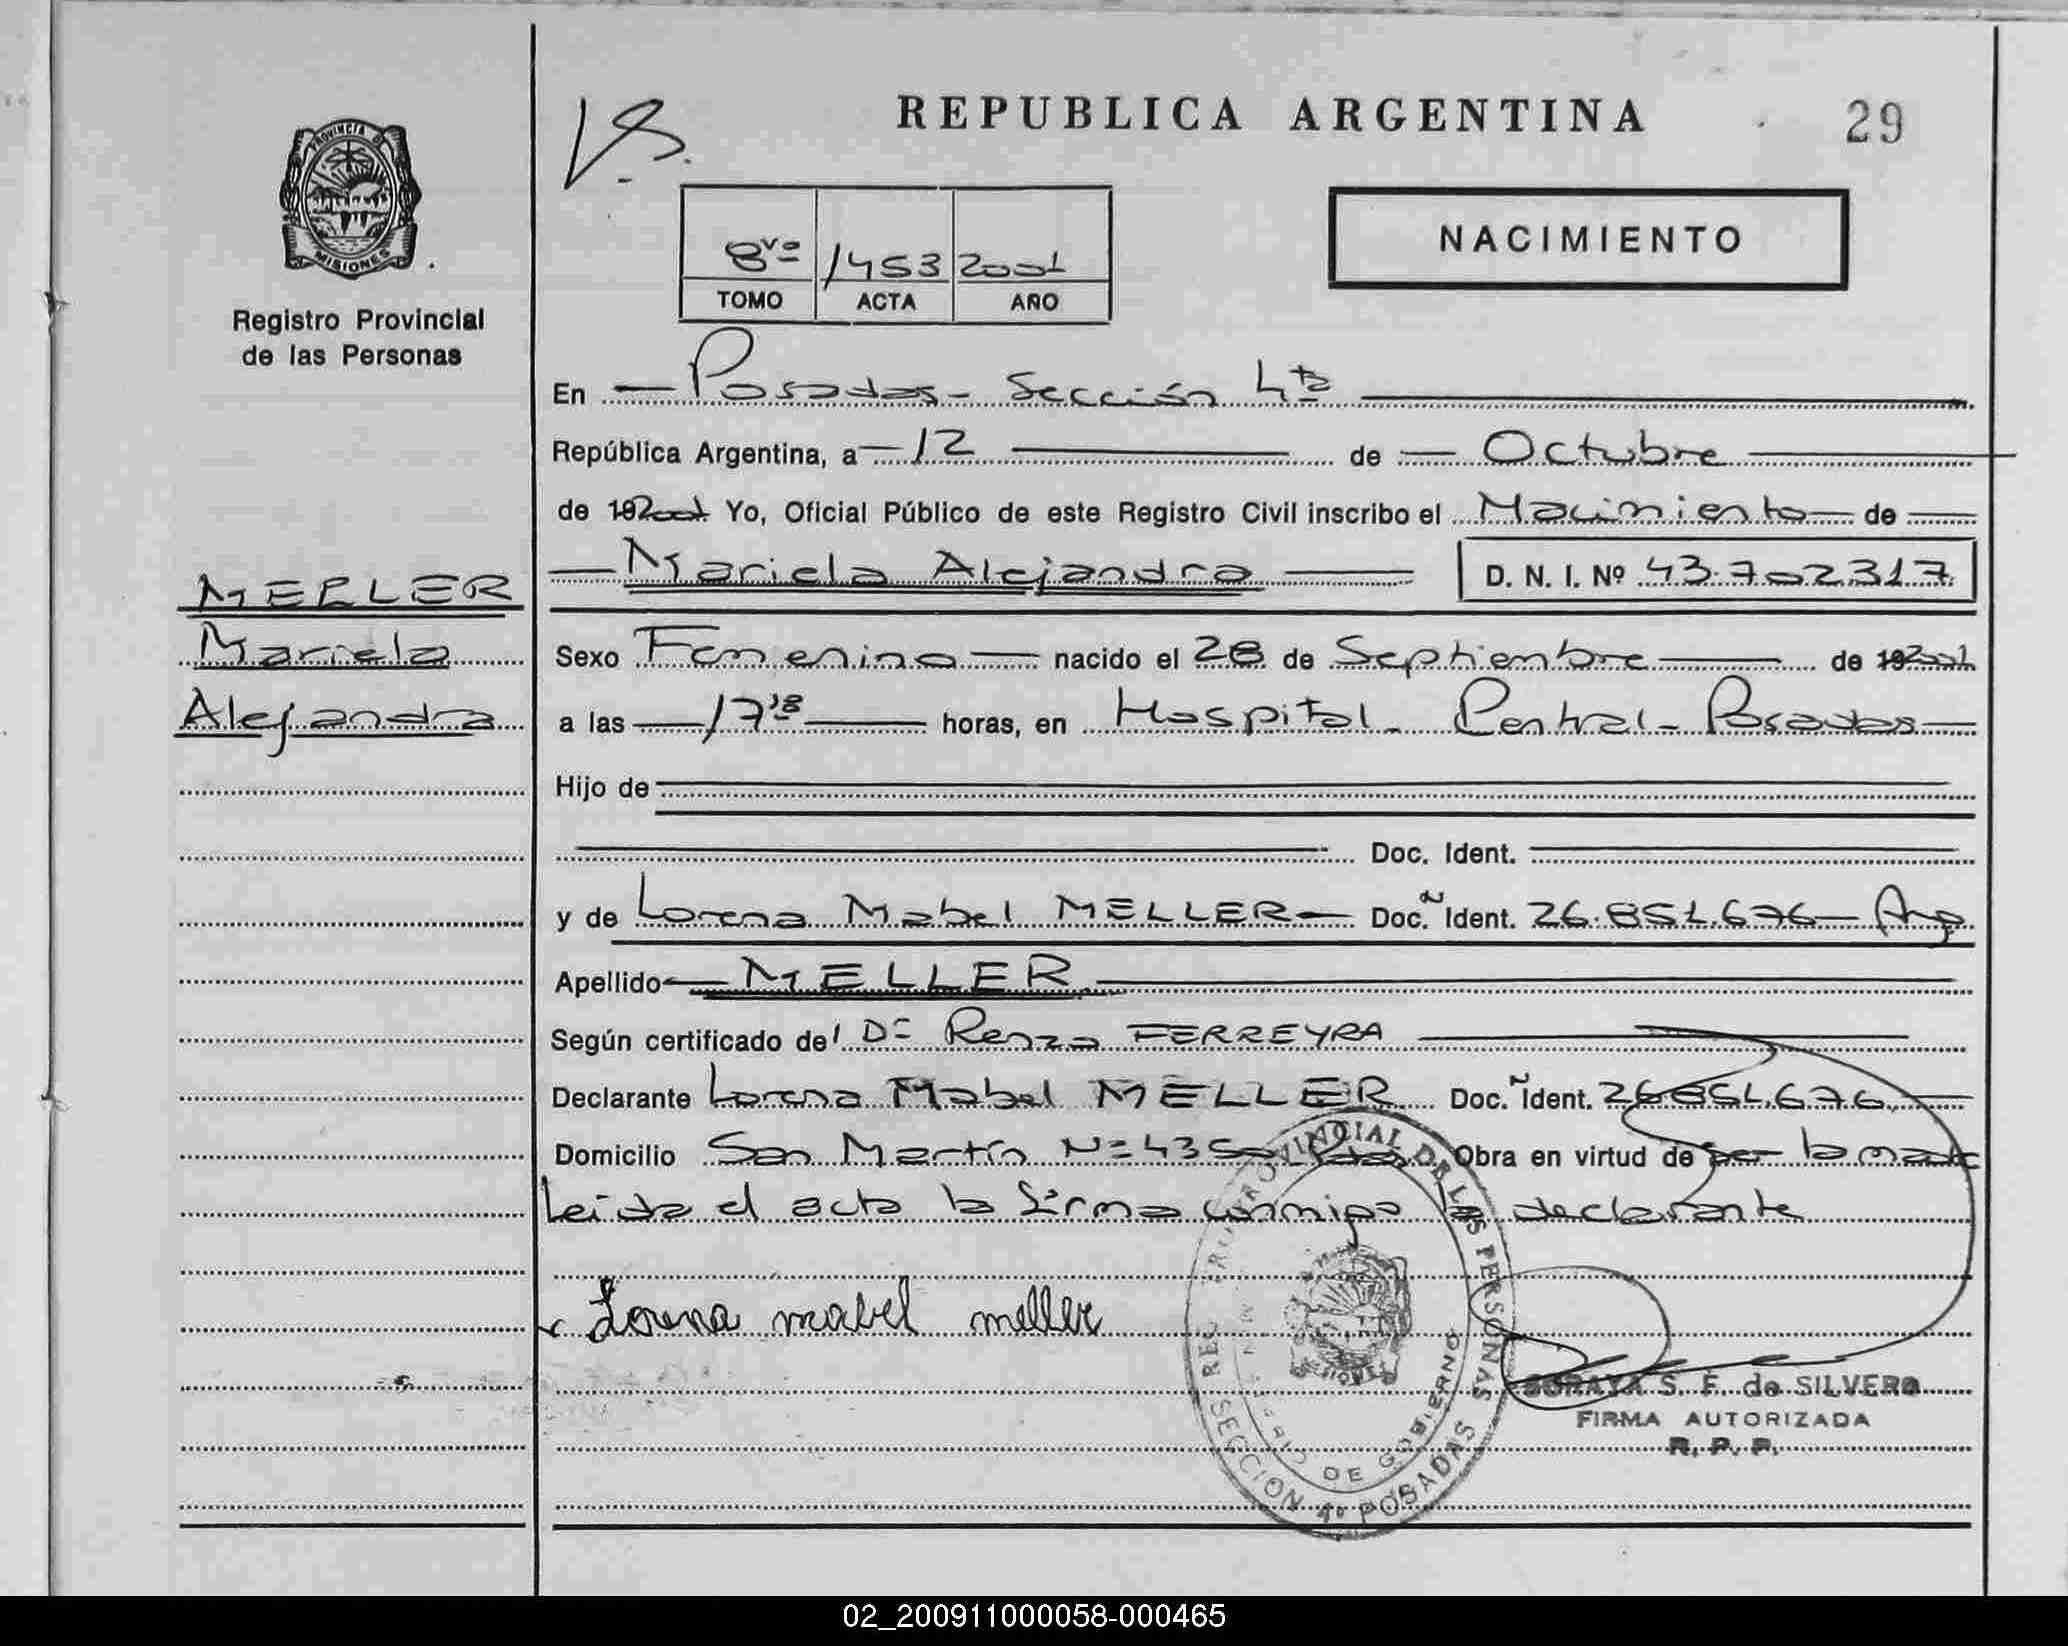 REPUBLICA ARGENTINA
29
PROVINCIA DE
MISIONES
Registro Provincial
de las Personas
8vo 1453 2001
TOMO ACTA AÑO
NACIMIENTO
En Posadas - Sección 4ta
República Argentina, a 12 de Octubre
de 192001 Yo, Oficial Público de este Registro Civil inscribo el Nacimiento de
Mariela Alejandra D. N. I. Nº 43.702317
MELLER
Mariela
Alejandra
Sexo Femenino nacido el 28 de Septiembre de 192001
a las 17,18 horas, en Hospital - Central - Posadas
Hijo de
Doc. Ident.
y de Lorena Mabel MELLER Doc. Ident. 26.851.676 - Arg
Apellido MELLER
Según certificado de Dra Renza FERREYRA
Declarante Lorena Mabel MELLER Doc. Ident. 26851.676
Domicilio San Martín Nº 435 Obra en virtud de ser la madre
Leida el acta la firma conmigo la declarante
Lorena mabel meller
REG. PROVINCIAL DE LAS PERSONAS
DE GOBIERNO
SECCION 4º POSADAS
SORAYA S. F. de SILVERO
FIRMA AUTORIZADA
R. P. P.
02_200911000058-000465